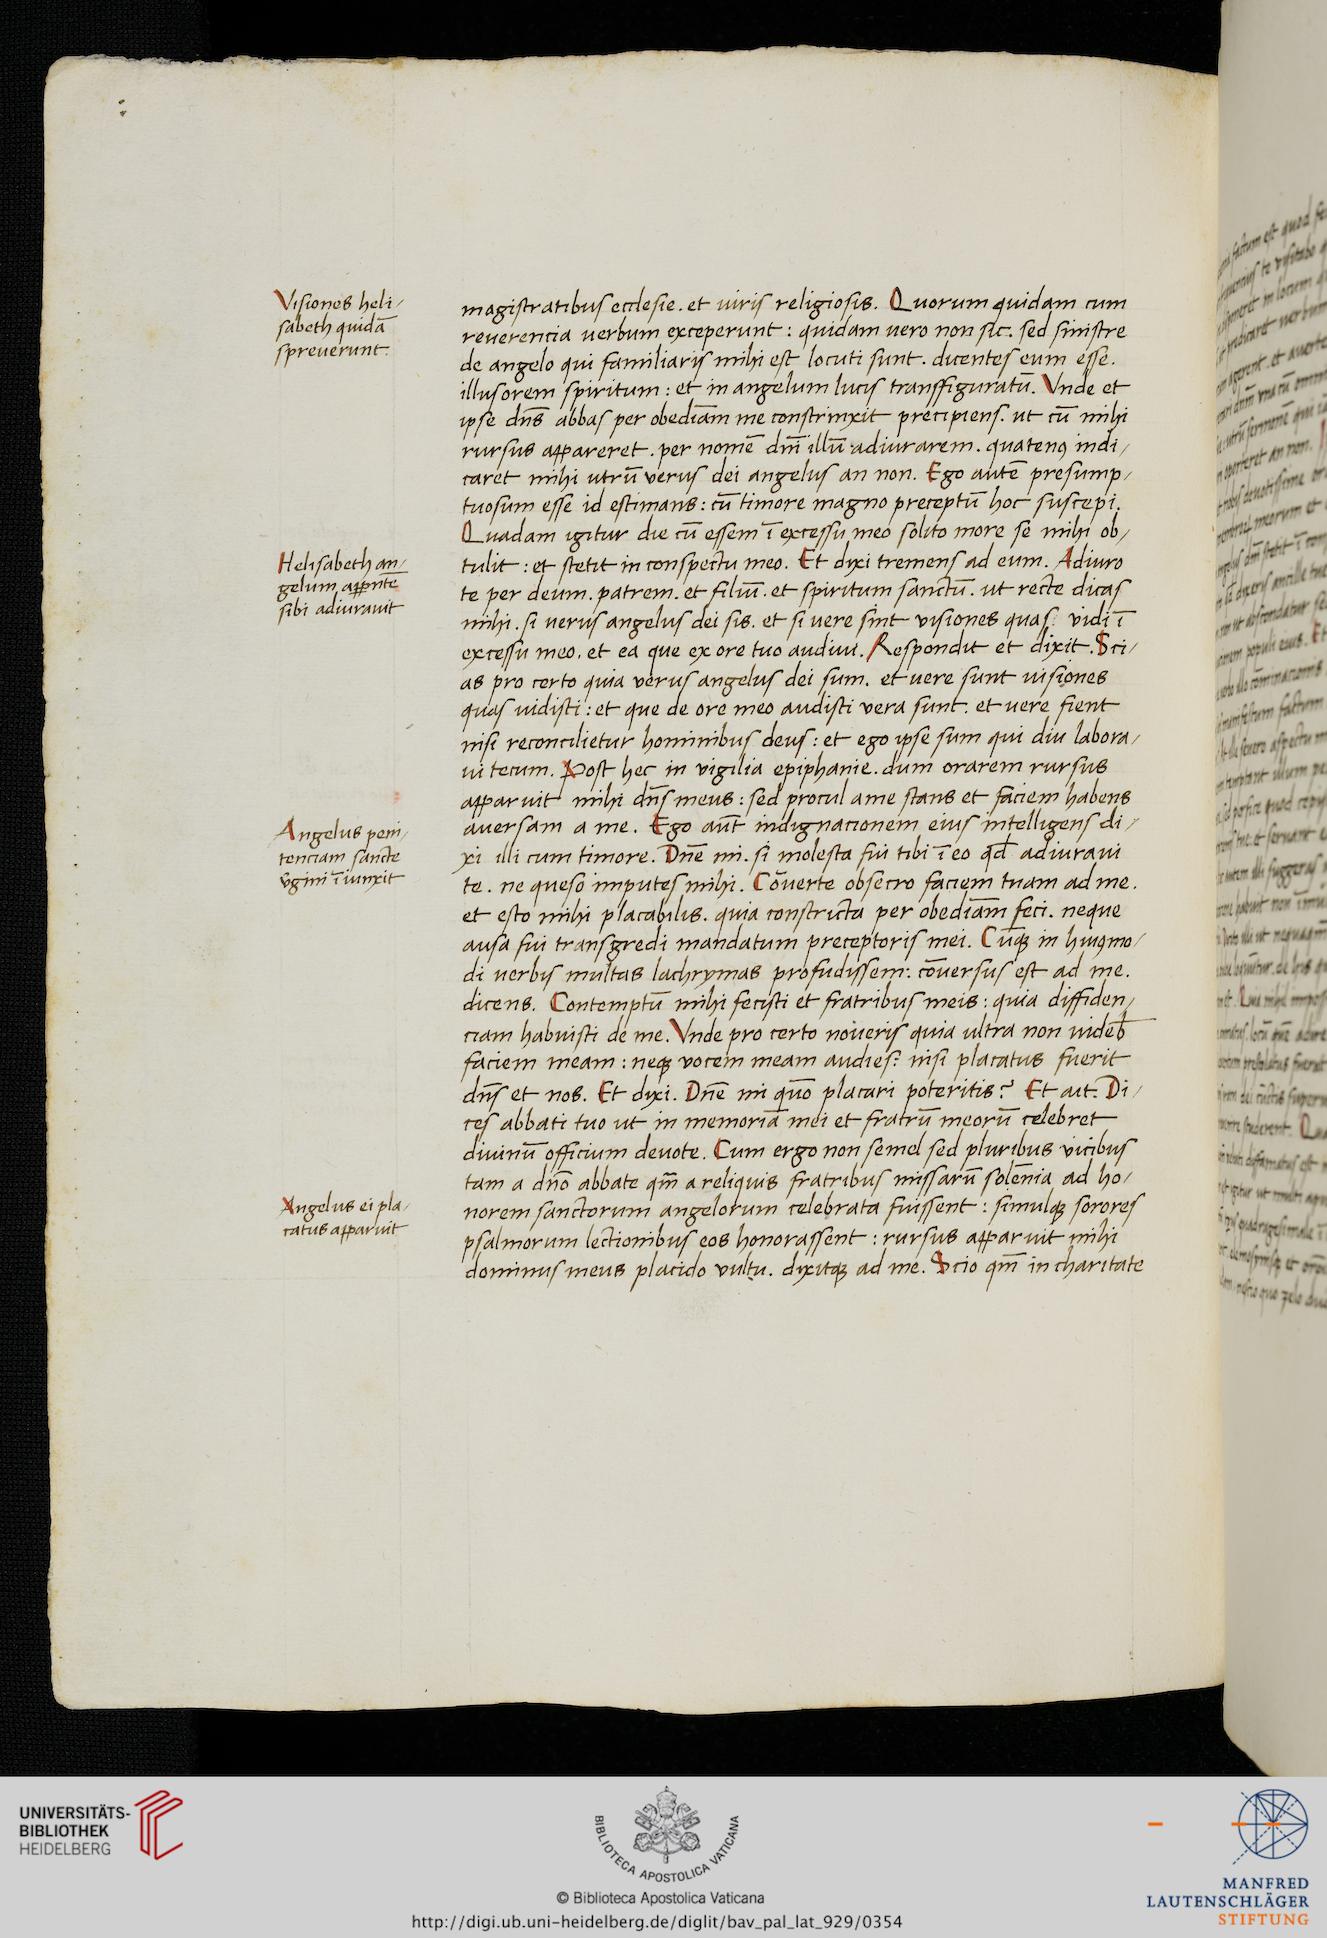 Visiones heli/
sabeth quidā
spreuerunt.
magistratibus ecclesie. et uiris religiosis. Quorum quidam cum
reverencia verbum exceperunt : quidam vero non sic. sed sinistre
de angelo qui familiaris mihi est locuti sunt. dicentes eum esse.
illusorem spiritum : et in angelum lucis transffiguratū. Vnde et
ipse dn̄s abbas per obediam̄ me constrinxit precipiens. ut cū mihi
rursus appareret. per nomē dm̄ illū adiurarem. quatenꝰ indi/
caret mihi utrū verus dei angelus an non. Ego autē presump/
tuosum esse id estimans : cū timore magno preceptū hoc suscepi.
Quadam igitur die cū essem ī excessu meo solito more se mihi ob/
Helisabeth an/
gelum appntē
sibi adiurauit
tulit : et stetit in conspectu meo. Et dixi tremens ad eum. Adiuro
te per deum. patrem. et filiū. et spiritum sanctū. ut recte dicas
mihi. si verus angelus dei sis. et si vere sint visiones quas vidi ī
excessu meo. et ea que ex ore tuo audiui. Respondit et dixit. Sci/
as pro certo quia verus angelus dei sum. et vere sunt uisiones
quas uidisti : et que de ore meo audisti vera sunt. et uere fient
nisi reconcilietur hominibus deus : et ego ipse sum qui diu labora/
ui tecum. Post hec in vigilia epiphanie. dum orarem rursus
apparuit mihi dn̄s meus : sed procul a me stans et faciem habens
Angelus peni/
tenciam sancte
v̄gini īiunxit
auersam a me. Ego aut̄ indignacionem eius intelligens di/
xi illi cum timore. Dnē mi. si molesta fui tibi ī eo qd̄ adiuraui
te. ne queso imputes mihi. Cōverte obsecro faciem tuam ad me.
et esto mihi placabilis. quia constricta per obediam̄ feci. neque
ausa fui transgredi mandatum preceptoris mei. Cūqꝫ in huiꝰmo/
di uerbis multas lachrymas profudissem : cōversus est ad me.
dicens. Contemptū mihi fecisti et fratribus meis : quia diffiden/
ciam habuisti de me. Vnde pro certo noueris quia ultra non uideb̄
faciem meam : neqꝫ vocem meam audies : nisi placatus fuerit
dn̄s et nos. Et dixi. Dnē mi quō placari poteritis? Et ait. Di/
ces abbati tuo ut in memoriā mei et fratrū meorū celebret
diuinū officium deuote. Cum ergo non semel sed pluribus vicibus
tam a dnō abbate qm̄ a reliquis fratribus missarū solēnia ad ho/
Angelus ei pla/
catus apparuit
norem sanctorum angelorum celebrata fuissent : simulqꝫ sorores
psalmorum lectionibus eos honorassent : rursus apparuit mihi
dominus meus placido vultu. dixitqꝫ ad me. Scio qm̄ in charitate
UNIVERSITÄTS-
BIBLIOTHEK
HEIDELBERG
BIBLIOTECA APOSTOLICA VATICANA
© Biblioteca Apostolica Vaticana
http://digi.ub.uni-heidelberg.de/diglit/bav_pal_lat_929/0354
MANFRED
LAUTENSCHLÄGER
STIFTUNG